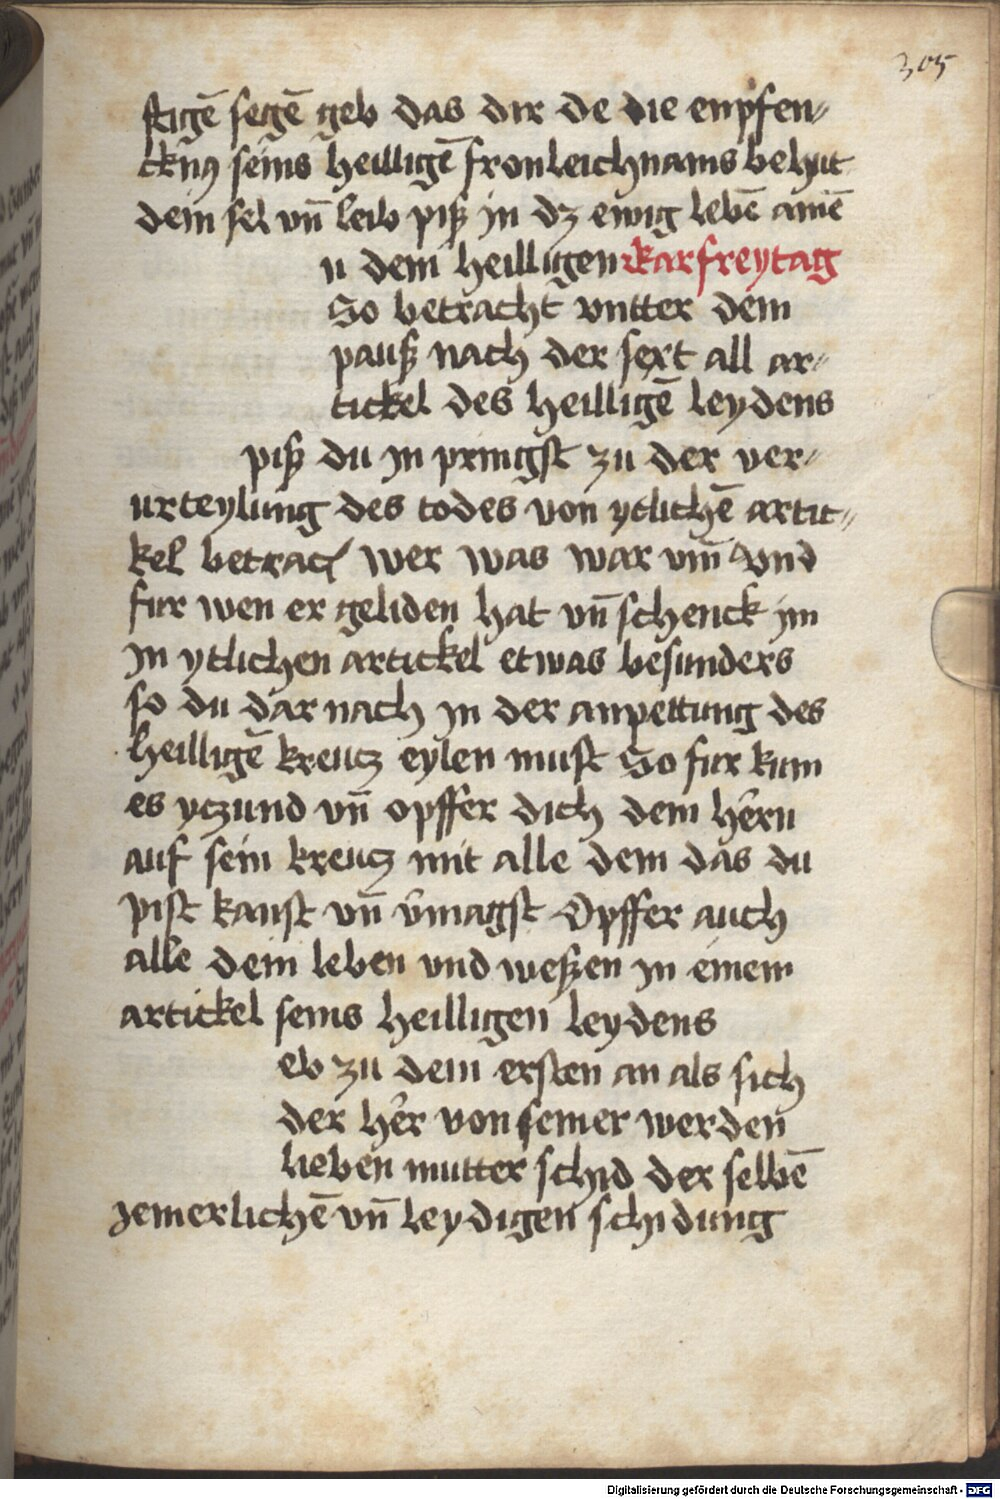 305
stigē segē geb das dir de die enpfen⸗
cknꝰ seins heilligē fronleichnams behut
dein sel vñ leib piß in dz ewig lebē amē
n dem heilligen karfreytag
So betracht vntter dem
pauß nach der sext all ar⸗
tickel des heilligē leydens
piß du in pringst zu der ver⸗
urteylung des todes von ytlichē artic⸗
kel betrach wer was war vm̄ vnd
fur wen er geliden hat vñ schenck im
in ytlichen artickel etwas besunders
so du darnach in der anpettung des
heilligē kreutz eylen must So fur kum
es yczund vñ opffer dich dem hern
auf sein kreutz mit alle dem das du
pist kanst vñ vmagst Opffer auch
alle dein leben vnd weßen in einem
artickel seins heilligen leydens
eb zu dem ersten an als sich
der her von seiner werden
lieben mutter schid der selbē
jemerlichē vñ leydigen schidung
Digitalisierung gefördert durch die Deutsche Forschungsgemeinschaft - DFG